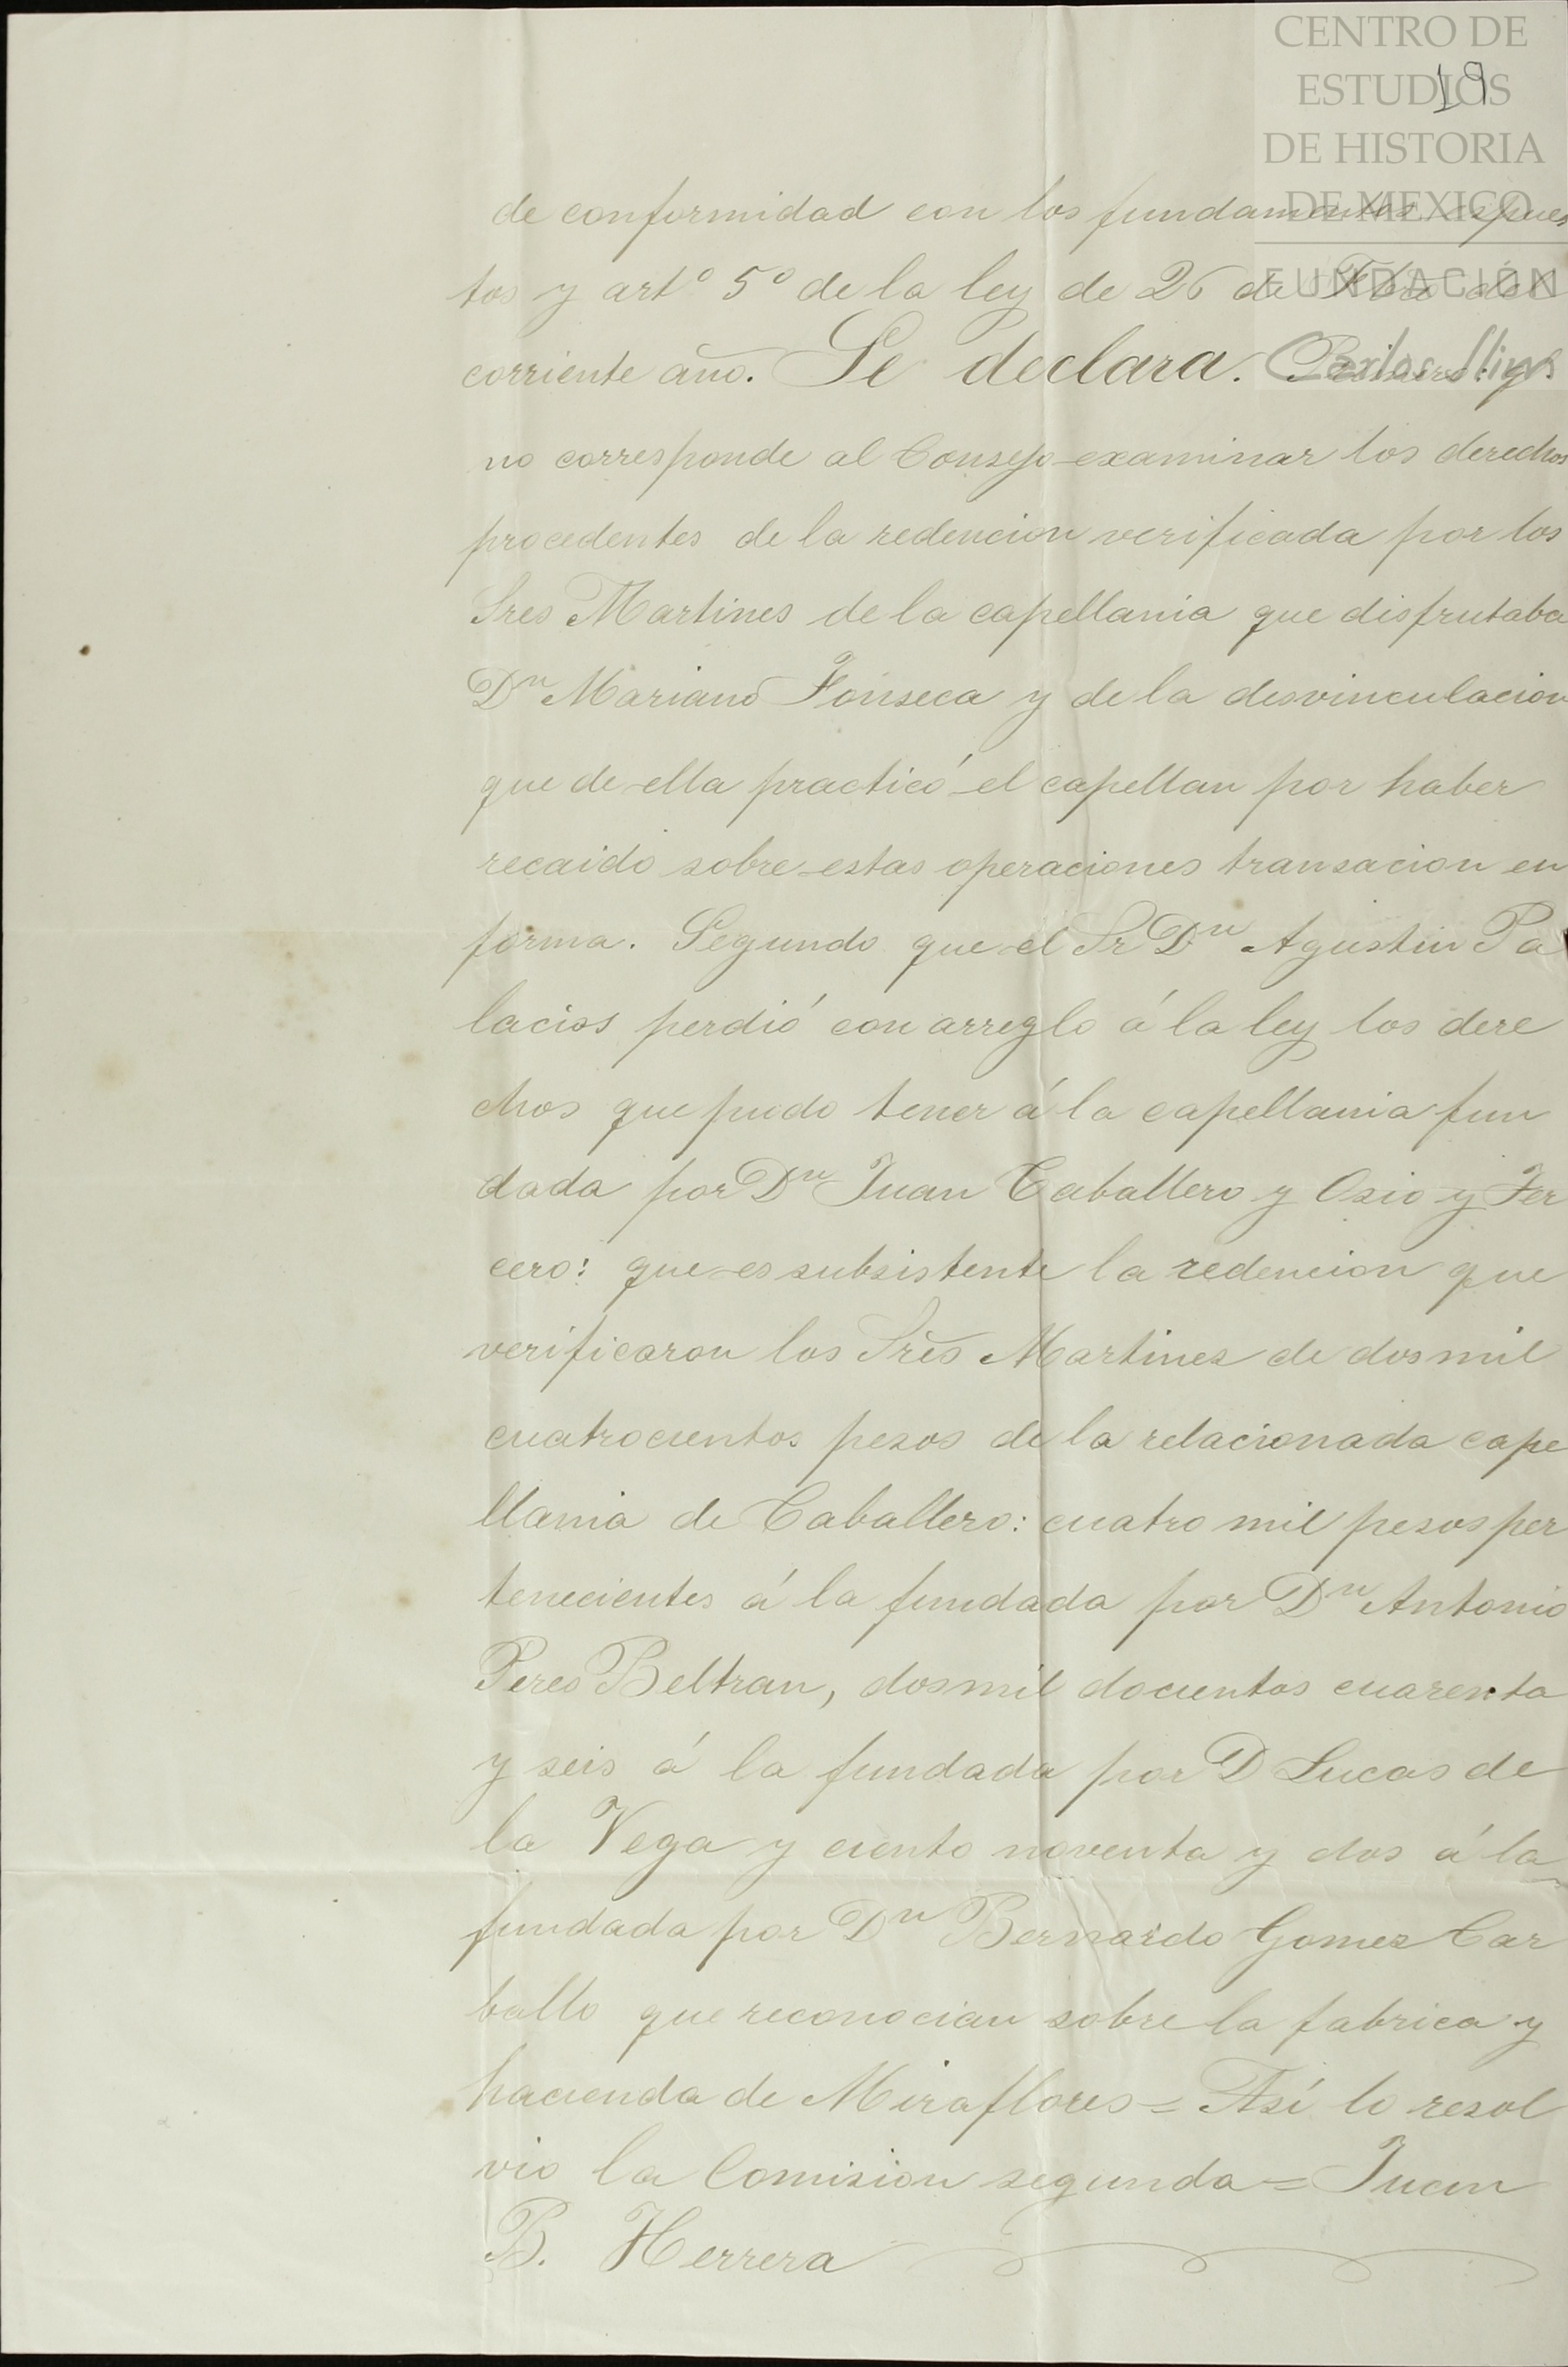 CENTRO DE
ESTUDIOS
DE HISTORIA
DE MEXICO
FUNDACIÓN
Carlos Slim
19
de conformidad con los fundamentos espues
tos y artº 5º de la ley de 26 de Febº del
corriente año. Se declara. Primero: q.
no corresponde al Consejo examinar los derechos
procedentes de la redencion verificada por los
Sres Martines de la capellania que disfrutaba
Dn Mariano Fonseca y de la desvinculacion
que de ella practicó el capellan por haber
recaido sobre estas operaciones transacion en
forma. Segundo que el Sr Dn Agustin Pa
lacios perdió con arreglo á la ley los dere
chos que pudo tener á la capellania fun
dada por Dn Juan Caballero y Osio y Ter
cero: que es subsistente la redencion que
verificaron los Sres Martinez de dos mil
cuatrocientos pesos de la relacionada cape
llania de Caballero: cuatro mil pesos per
tenecientes á la fundada por Dn Antonio
Peres Beltran, dos mil docientos cuarenta
y seis á la fundada por D Lucas de
la Vega y ciento noventa y dos á la
fundada por Dn Bernardo Gomez Car
ballo que reconocian sobre la fabrica y
hacienda de Miraflores = Así lo resol
vio la Comision segunda = Juan
B. Herrera